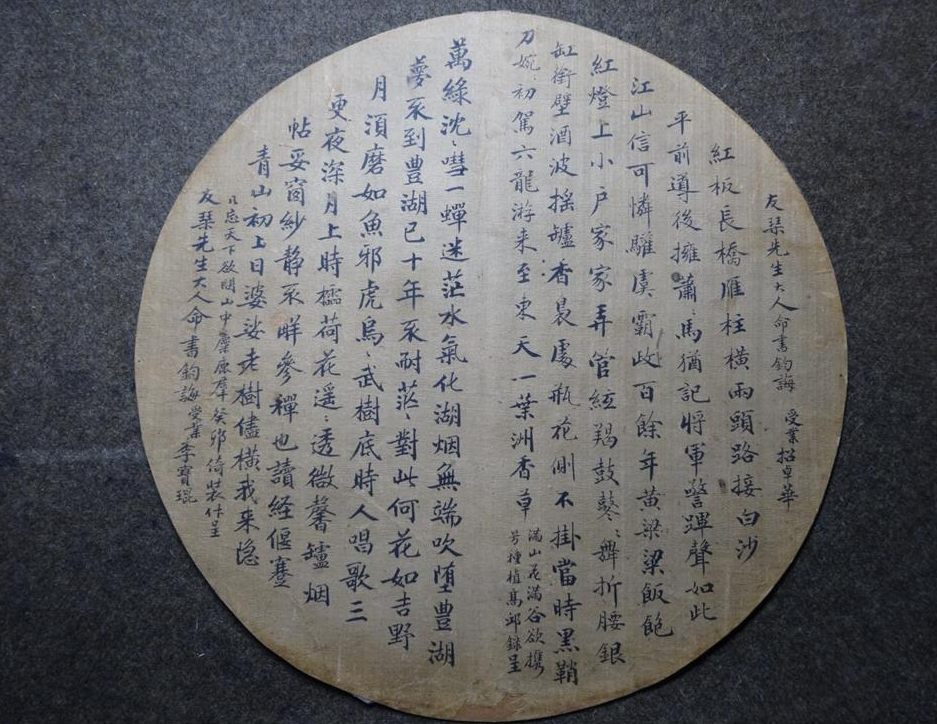 友琹先生大人命書鈞誨 受業招卓華
紅板長橋雁柱橫兩頭路接白沙
平前導後擁蕭〻馬猶記將軍警蹕聲如此
江山信可憐騶虞霸政百餘年黃梁梁飯飽
紅燈上小戶家家弄管絃羯鼓鼕〻舞折腰銀
缸銜壁酒波搖罏香晨處瓶花側不掛當時黑鞘
刀婉〻初駕六龍游来至東天一葉洲香草
滿山花滿谷欲攜
芳種植高邱錄呈
萬綠沈〻嘒一蟬迷茫水氣化湖烟無端吹堕豊湖
夢不到豊湖已十年不耐茫〻對此何花如吉野
月須磨如魚邪虎烏〻武樹底時人唱歌三
更夜深月上時荷花遥〻透微馨罏烟
帖妥窗紗静不参禪也讀経偃蹇
青山初上日婆娑老樹儘橫我来隐
忘天下欲関山中麋鹿羣癸卯倚装作呈
友琹先生大人命書鈞誨受業李寶琨